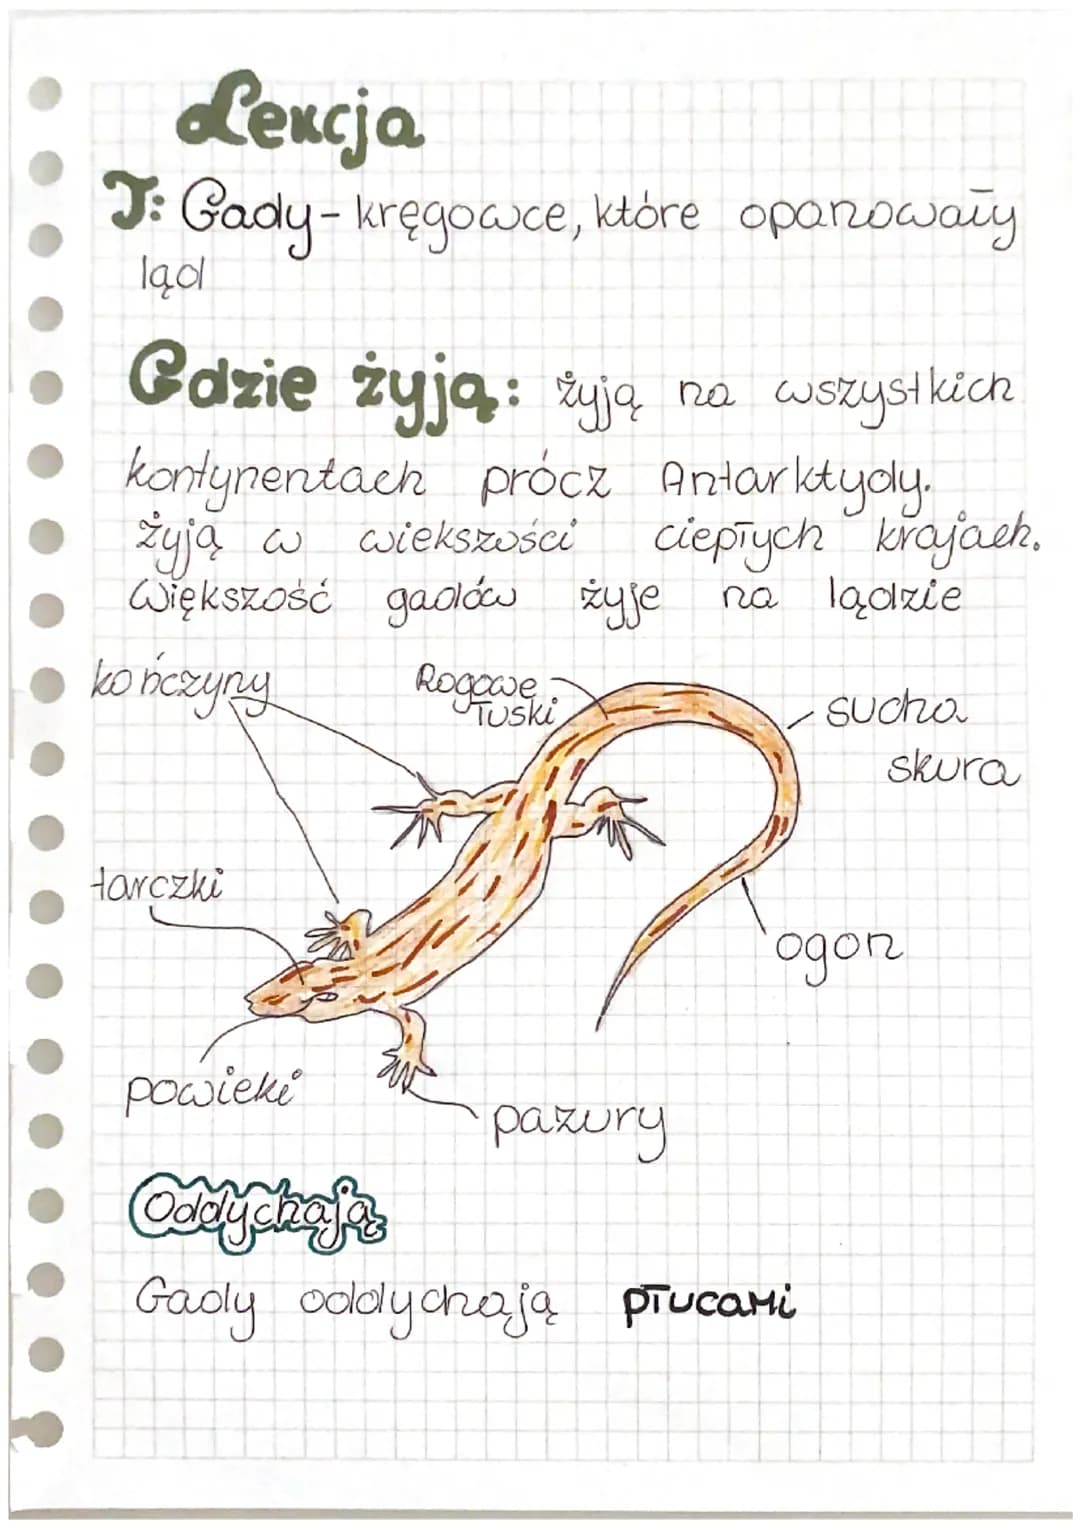 Lekcja
T: Gady - kręgowce, które opanowały
ląd
Gdzie żyją: żyją na wszystkich
kontynentach prócz Antarktydy.
żyją w wiekszości ciepłych krajach.
Większość gadów żyje na lądzie
kończyny
Rogowe
łuski
sucha
skura
tarczki
ogon
powieki
pazury
Oddychają
Gady oddychają płucami